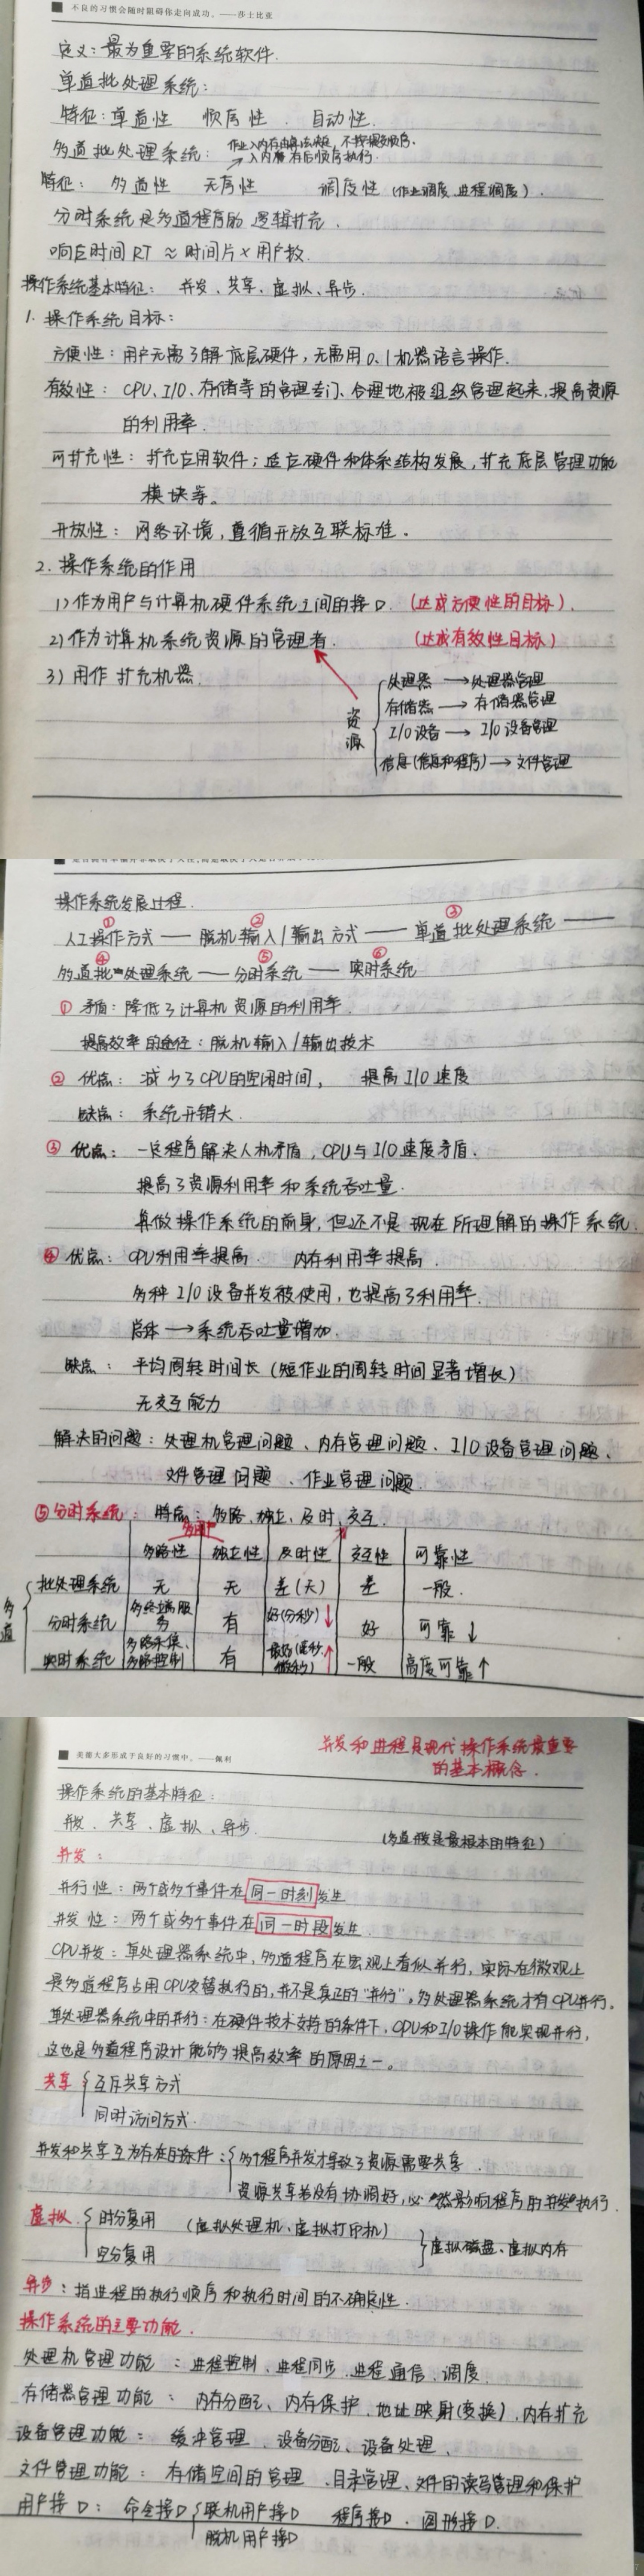 不良的习惯会随时阻碍你走向成功。——莎士比亚
定义：最为重要的系统软件.
单道批处理系统：
特征：单道性 顺序性 . 自动性.
作业入内存由算法决定，不按提交顺序.
多道批处理系统： 入内存后顺序执行.
特征： 多道性 无序性 调度性 (作业调度.进程调度) .
分时系统是多道程序的逻辑扩充 .
响应时间 RT ≈ 时间片 × 用户数.
操作系统基本特征： 并发、共享、虚拟、异步.
1. 操作系统目标：
方便性：用户无需了解底层硬件，无需用0.1机器语言操作.
有效性： CPU、I/O、存储等的管理专门、合理地被组织管理起来，提高资源
的利用率.
可扩充性：扩充应用软件；适应硬件和体系结构发展，扩充底层管理功能
模块等。
开放性： 网络环境，遵循开放互联标准 .
2. 操作系统的作用
1)作为用户与计算机硬件系统之间的接口. (达成方便性的目标) .
2)作为计算机系统资源的管理者. (达成有效性目标)
3) 用作扩充机器.
资源
处理器 → 处理器管理
存储器 → 存储器管理
I/O设备 → I/O设备管理
信息(信息和程序) → 文件管理
操作系统发展过程.
① ② ③
人工操作方式 — 脱机输入/输出方式 — 单道批处理系统 —
④ ⑤ ⑥
多道批处理系统 — 分时系统 — 实时系统
① 矛盾：降低了计算机资源的利用率.
提高效率的途径：脱机输入/输出技术
② 优点： 减少了CPU的空闲时间， 提高I/O速度
缺点： 系统开销大.
③ 优点： 一定程序解决人机矛盾，CPU与I/O速度矛盾.
提高了资源利用率和系统吞吐量.
算做操作系统的前身，但还不是现在所理解的操作系统.
④ 优点： CPU利用率提高. 内存利用率提高.
多种I/O设备并发被使用，也提高了利用率.
总体 → 系统吞吐量增加.
缺点： 平均周转时间长 (短作业的周转时间显著增长)
无交互能力
解决的问题：处理机管理问题、内存管理问题、I/O设备管理问题、
文件管理问题 、作业管理问题.
⑤ 分时系统： 特点：多路、独立、及时、交互.
多用户
多路性 独立性 及时性 交互性 可靠性
多道
批处理系统 无 无 差(天) 差 一般.
分时系统 多终端服务 有 好(分秒)↓ 好 可靠 ↓
实时系统 多路采集、多路控制 有 最好(毫秒、微秒)↑ 一般 高度可靠↑
美德大多形成于良好的习惯中。——佩利
并发和进程是现代操作系统最重要
的基本概念.
操作系统的基本特征：
并发、共享、虚拟、异步.
(多道并发是最根本的特征)
并发：
并行性：两个或多个事件在同一时刻发生
并发性：两个或多个事件在同一时段发生.
CPU并发：单处理器系统中，多道程序在宏观上看似并行，实际在微观上
是多道程序占用CPU交替执行的，并不是真正的“并行”，多处理器系统才有CPU并行.
单处理器系统中的并行：在硬件技术支持的条件下，CPU和I/O操作能实现并行，
这也是多道程序设计能够提高效率的原因之一。
共享 互斥共享方式
同时访问方式.
并发和共享互为存在的条件： 多个程序并发才导致了资源需要共享.
资源共享若没有协调好，必然影响程序的并发执行.
虚拟 时分复用 (虚拟处理机、虚拟打印机)
空分复用
虚拟磁盘、虚拟内存
异步：指进程的执行顺序和执行时间的不确定性.
操作系统的主要功能.
处理机管理功能 ：进程控制、进程同步.进程通信、调度.
存储器管理功能 ： 内存分配、内存保护.地址映射(变换).内存扩充
设备管理功能： 缓冲管理 . 设备分配、设备处理.
文件管理功能： 存储空间的管理 .目录管理、文件的读写管理和保护
用户接口： 命令接口 联机用户接口 程序接口. 图形接口.
脱机用户接口